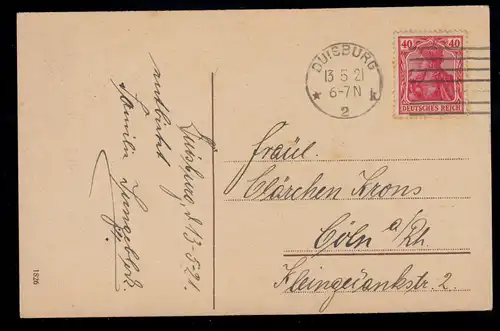 DUISBURG
13.5.21
6-7N
* k
2
40 40
DEUTSCHES REICH
Duisburg d 13-5-21.
Familie
Fräul.
Clärchen Krons
Cöln a/Rh
Kleingedankstr. 2.
1826